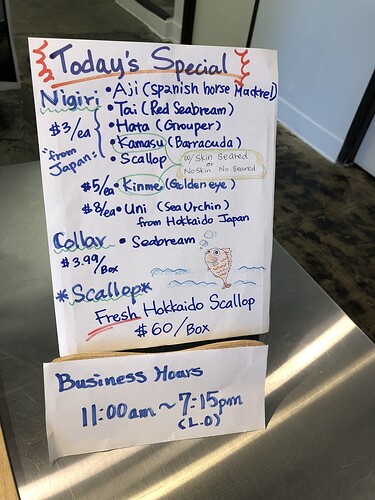 Today's Special
Nigiri
$3/ea
"from Japan"
• Aji (Spanish horse Mackrel)
• Tai (Red Seabream)
• Hata (Grouper)
• Kamasu (Barracuda)
• Scallop
w/ Skin Seared
or
No Skin No Seared
$5/ea • Kinme (Goldeneye)
$8/ea • Uni (Sea Urchin)
from Hokkaido Japan
Collar • Seabream
$3.99/Box
*Scallop*
Fresh Hokkaido Scallop
$60/Box
Business Hours
11:00am ~ 7:15pm
(L.O)